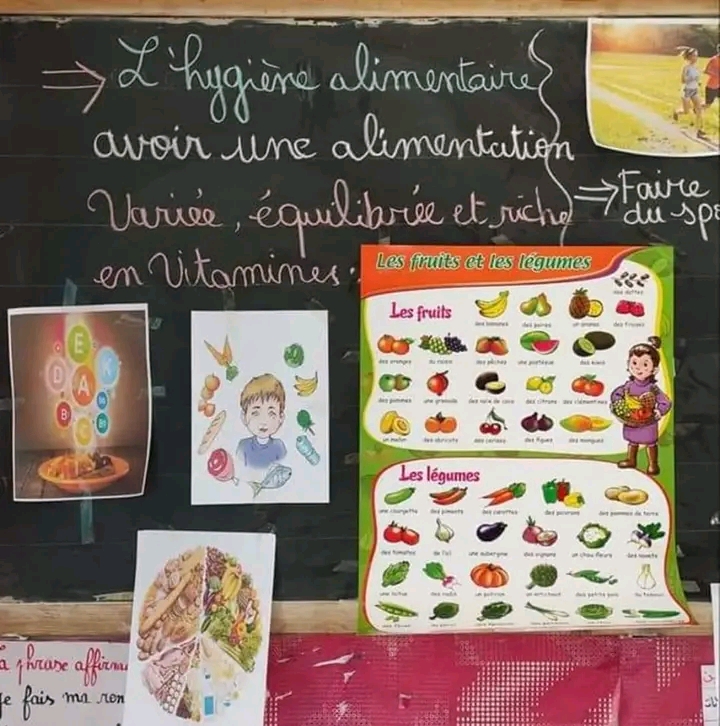 ⇒ L'hygiène alimentaire
avoir une alimentation
Variée, équilibrée et riche
en Vitamines.
⇒ Faire
du
Les fruits et les légumes
des dattes
Les fruits
des bananes des poires un ananas des fraises
des oranges du raisin des pêches une pastèque des kiwis
des pommes une grenade des noix de coco des citrons des clémentines
un melon des abricots des cerises des figues des mangues
Les légumes
une courgette des piments des carottes des poivrons des pommes de terre
des tomates de l'ail une aubergine des oignons un chou fleurs des navets
une laitue des radis un potiron un artichaut des petits pois du fenouil
E
D A K
B
phrase
fais ma